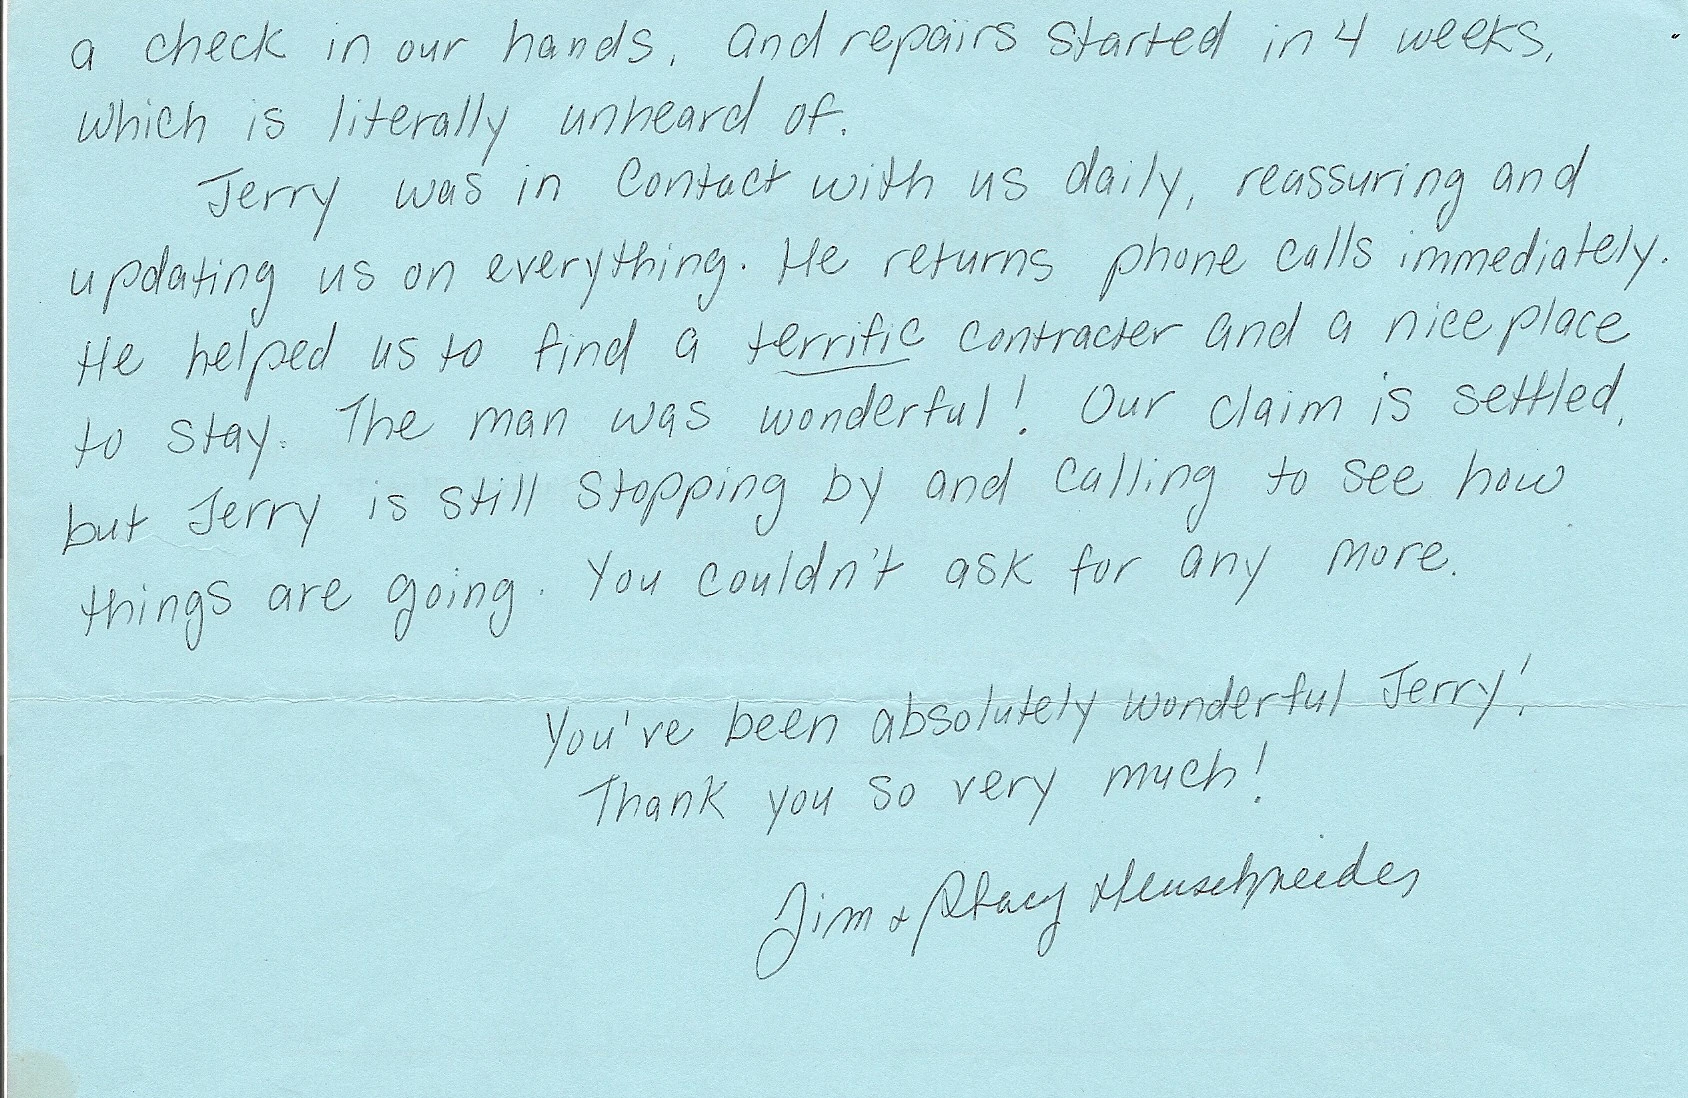 a check in our hands, and repairs started in 4 weeks,
which is literally unheard of.
Jerry was in contact with us daily, reassuring and
updating us on everything. He returns phone calls immediately.
He helped us to find a terrific contracter and a nice place
to stay. The man was wonderful! Our claim is settled,
but Jerry is still stopping by and calling to see how
things are going. You couldn't ask for any more.
You've been absolutely wonderful Jerry!
Thank you so very much!
Jim & Stacy Heuschneider